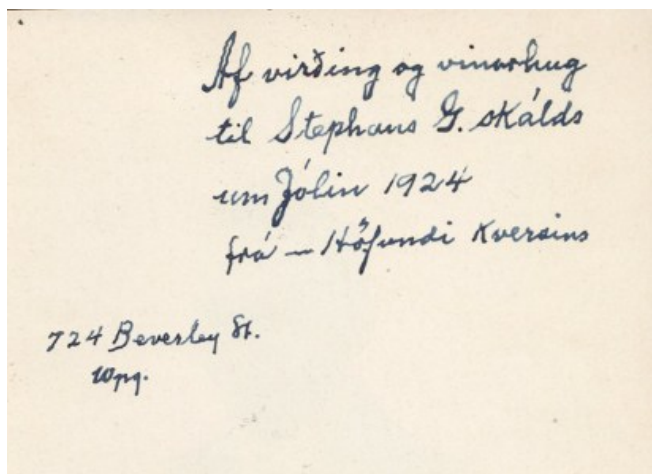 Af virðing og vinarhug
til Stephans G. skálds
um Jólin 1924
frá - Höfundi Kversins
724 Beverley St.
Wpg.